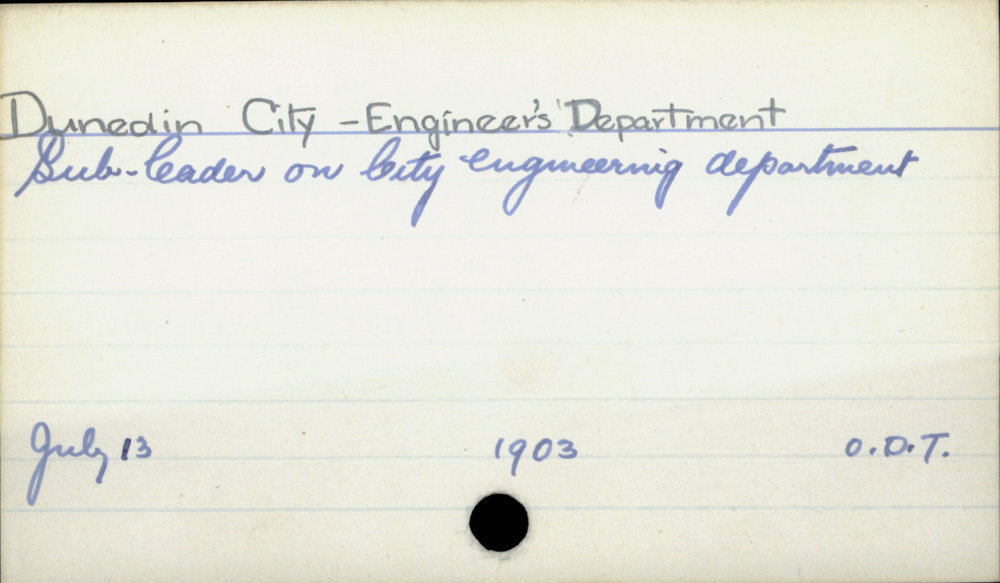 Dunedin City - Engineer's Department
Sub-leader on City engineering department
July 13 1903 O.D.T.